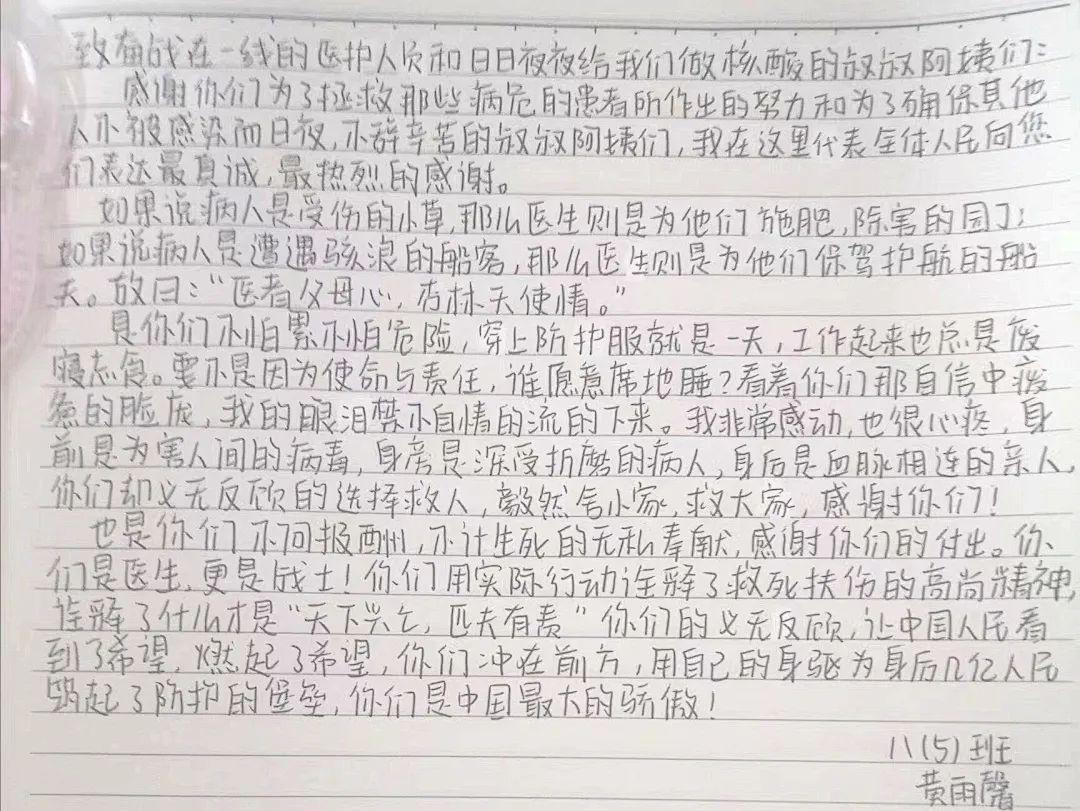 致奋战在一线的医护人员和日日夜夜给我们做核酸的叔叔阿姨们:
感谢你们为了拯救那些病危的患者所作出的努力和为了确保其他
人不被感染而日夜,不辞辛苦的叔叔阿姨们,我在这里代表全体人民向您
们表达最真诚,最热烈的感谢。
如果说病人是受伤的小草,那么医生则是为他们施肥,除害的园丁;
如果说病人是遭遇骇浪的船客,那么医生则是为他们保驾护航的船
夫。故曰:“医者父母心,杏林天使情。”
是你们不怕累不怕危险,穿上防护服就是一天,工作起来也总是废
寝忘食。要不是因为使命与责任,谁愿意席地睡?看着你们那自信中疲
惫的脸庞,我的眼泪禁不自情的流的下来。我非常感动,也很心疼,身
前是为害人间的病毒,身旁是深受折磨的病人,身后是血脉相连的亲人,
你们却义无反顾的选择救人,毅然舍小家,救大家,感谢你们!
也是你们不问报酬,不计生死的无私奉献,感谢你们的付出。你
们是医生,更是战士!你们用实际行动诠释了救死扶伤的高尚精神,
诠释了什么才是“天下兴亡,匹夫有责”你们的义无反顾,让中国人民看
到了希望,燃起了希望,你们冲在前方,用自己的身躯为身后几亿人民
筑起了防护的堡垒,你们是中国最大的骄傲!
八(5)班
黄雨馨